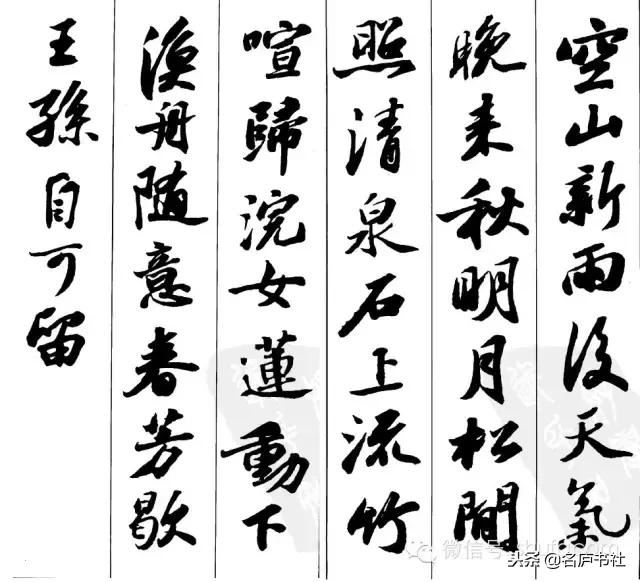 空山新雨後天氣
晚来秋明月松間
照清泉石上流竹
喧歸浣女蓮動下
漁舟随意春芳歇
王孫自可留
微信号
头条@名庐书社